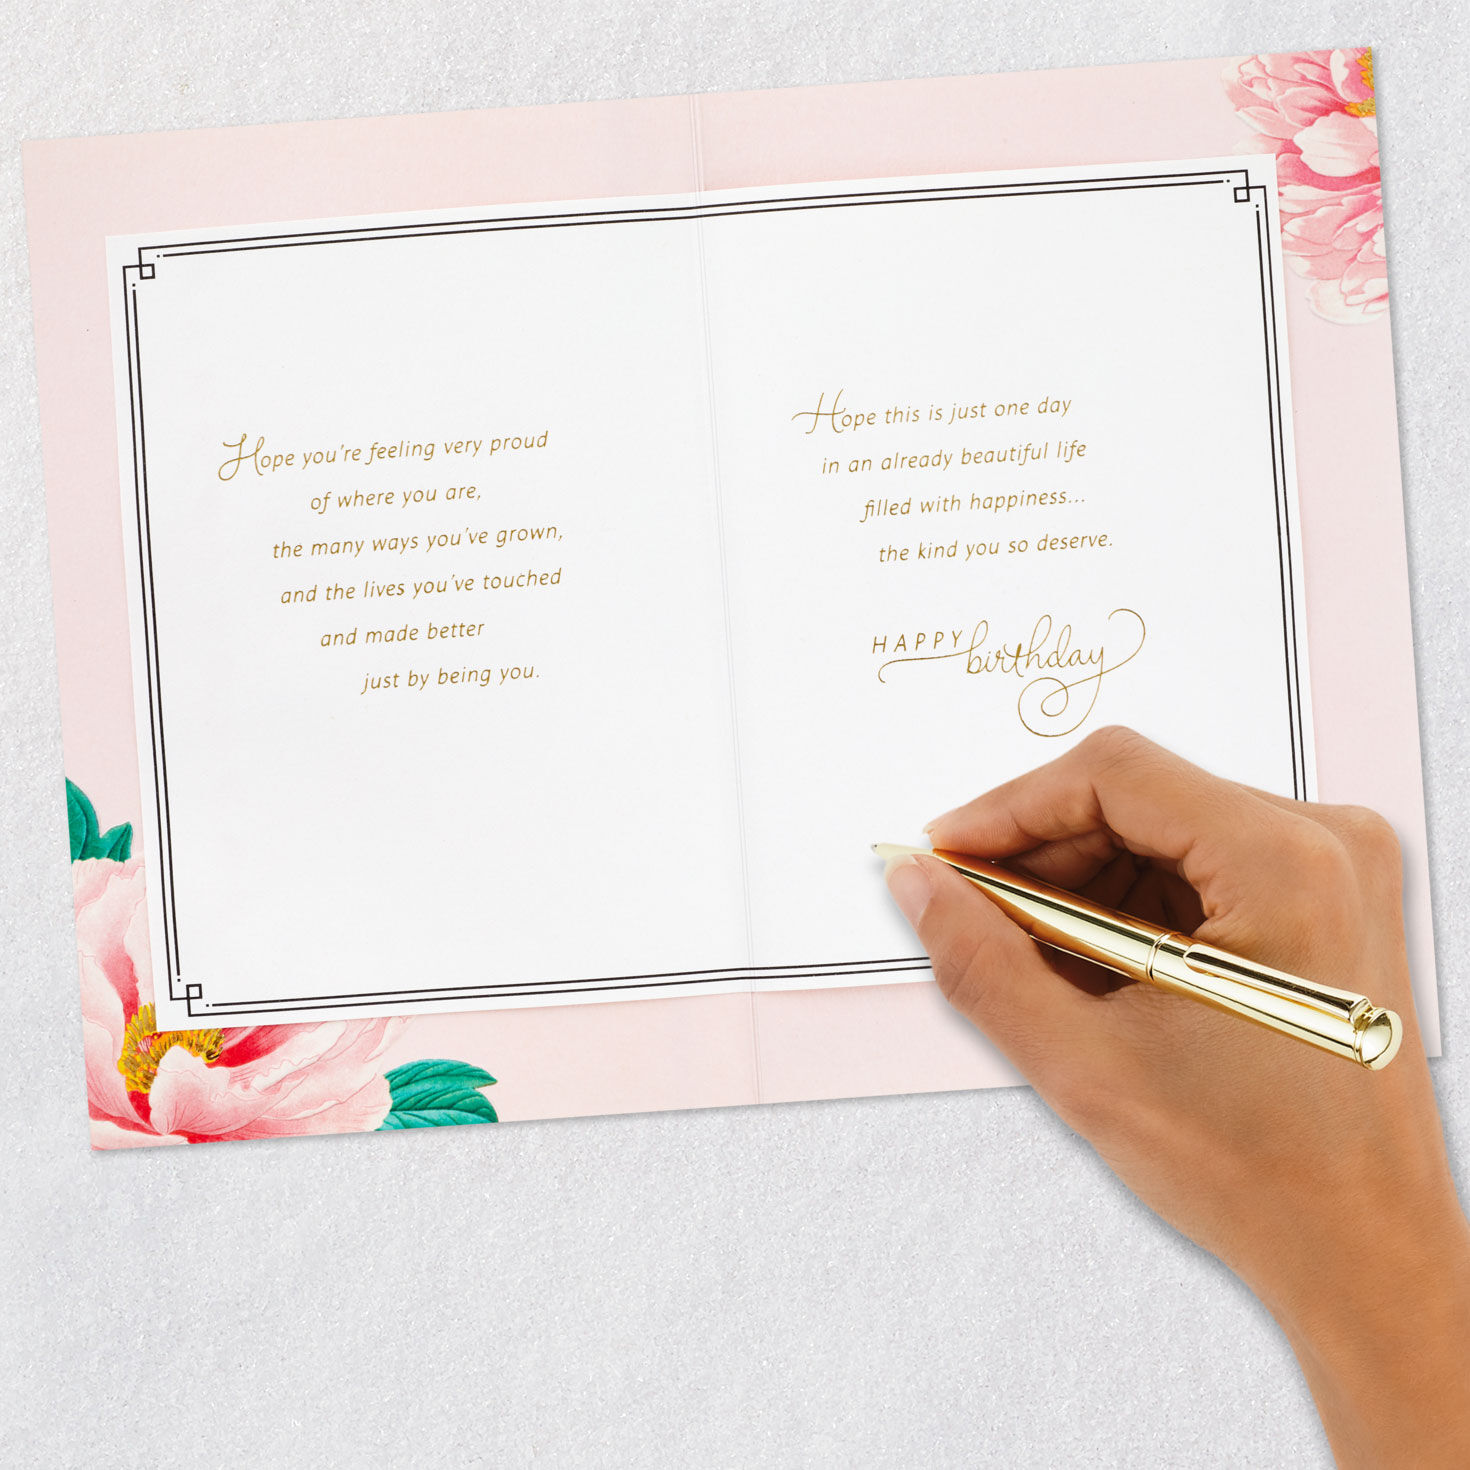 Hope you're feeling very proud
of where you are,
the many ways you've grown,
and the lives you've touched
and made better
just by being you.
Hope this is just one day
in an already beautiful life
filled with happiness...
the kind you so deserve.
HAPPY birthday